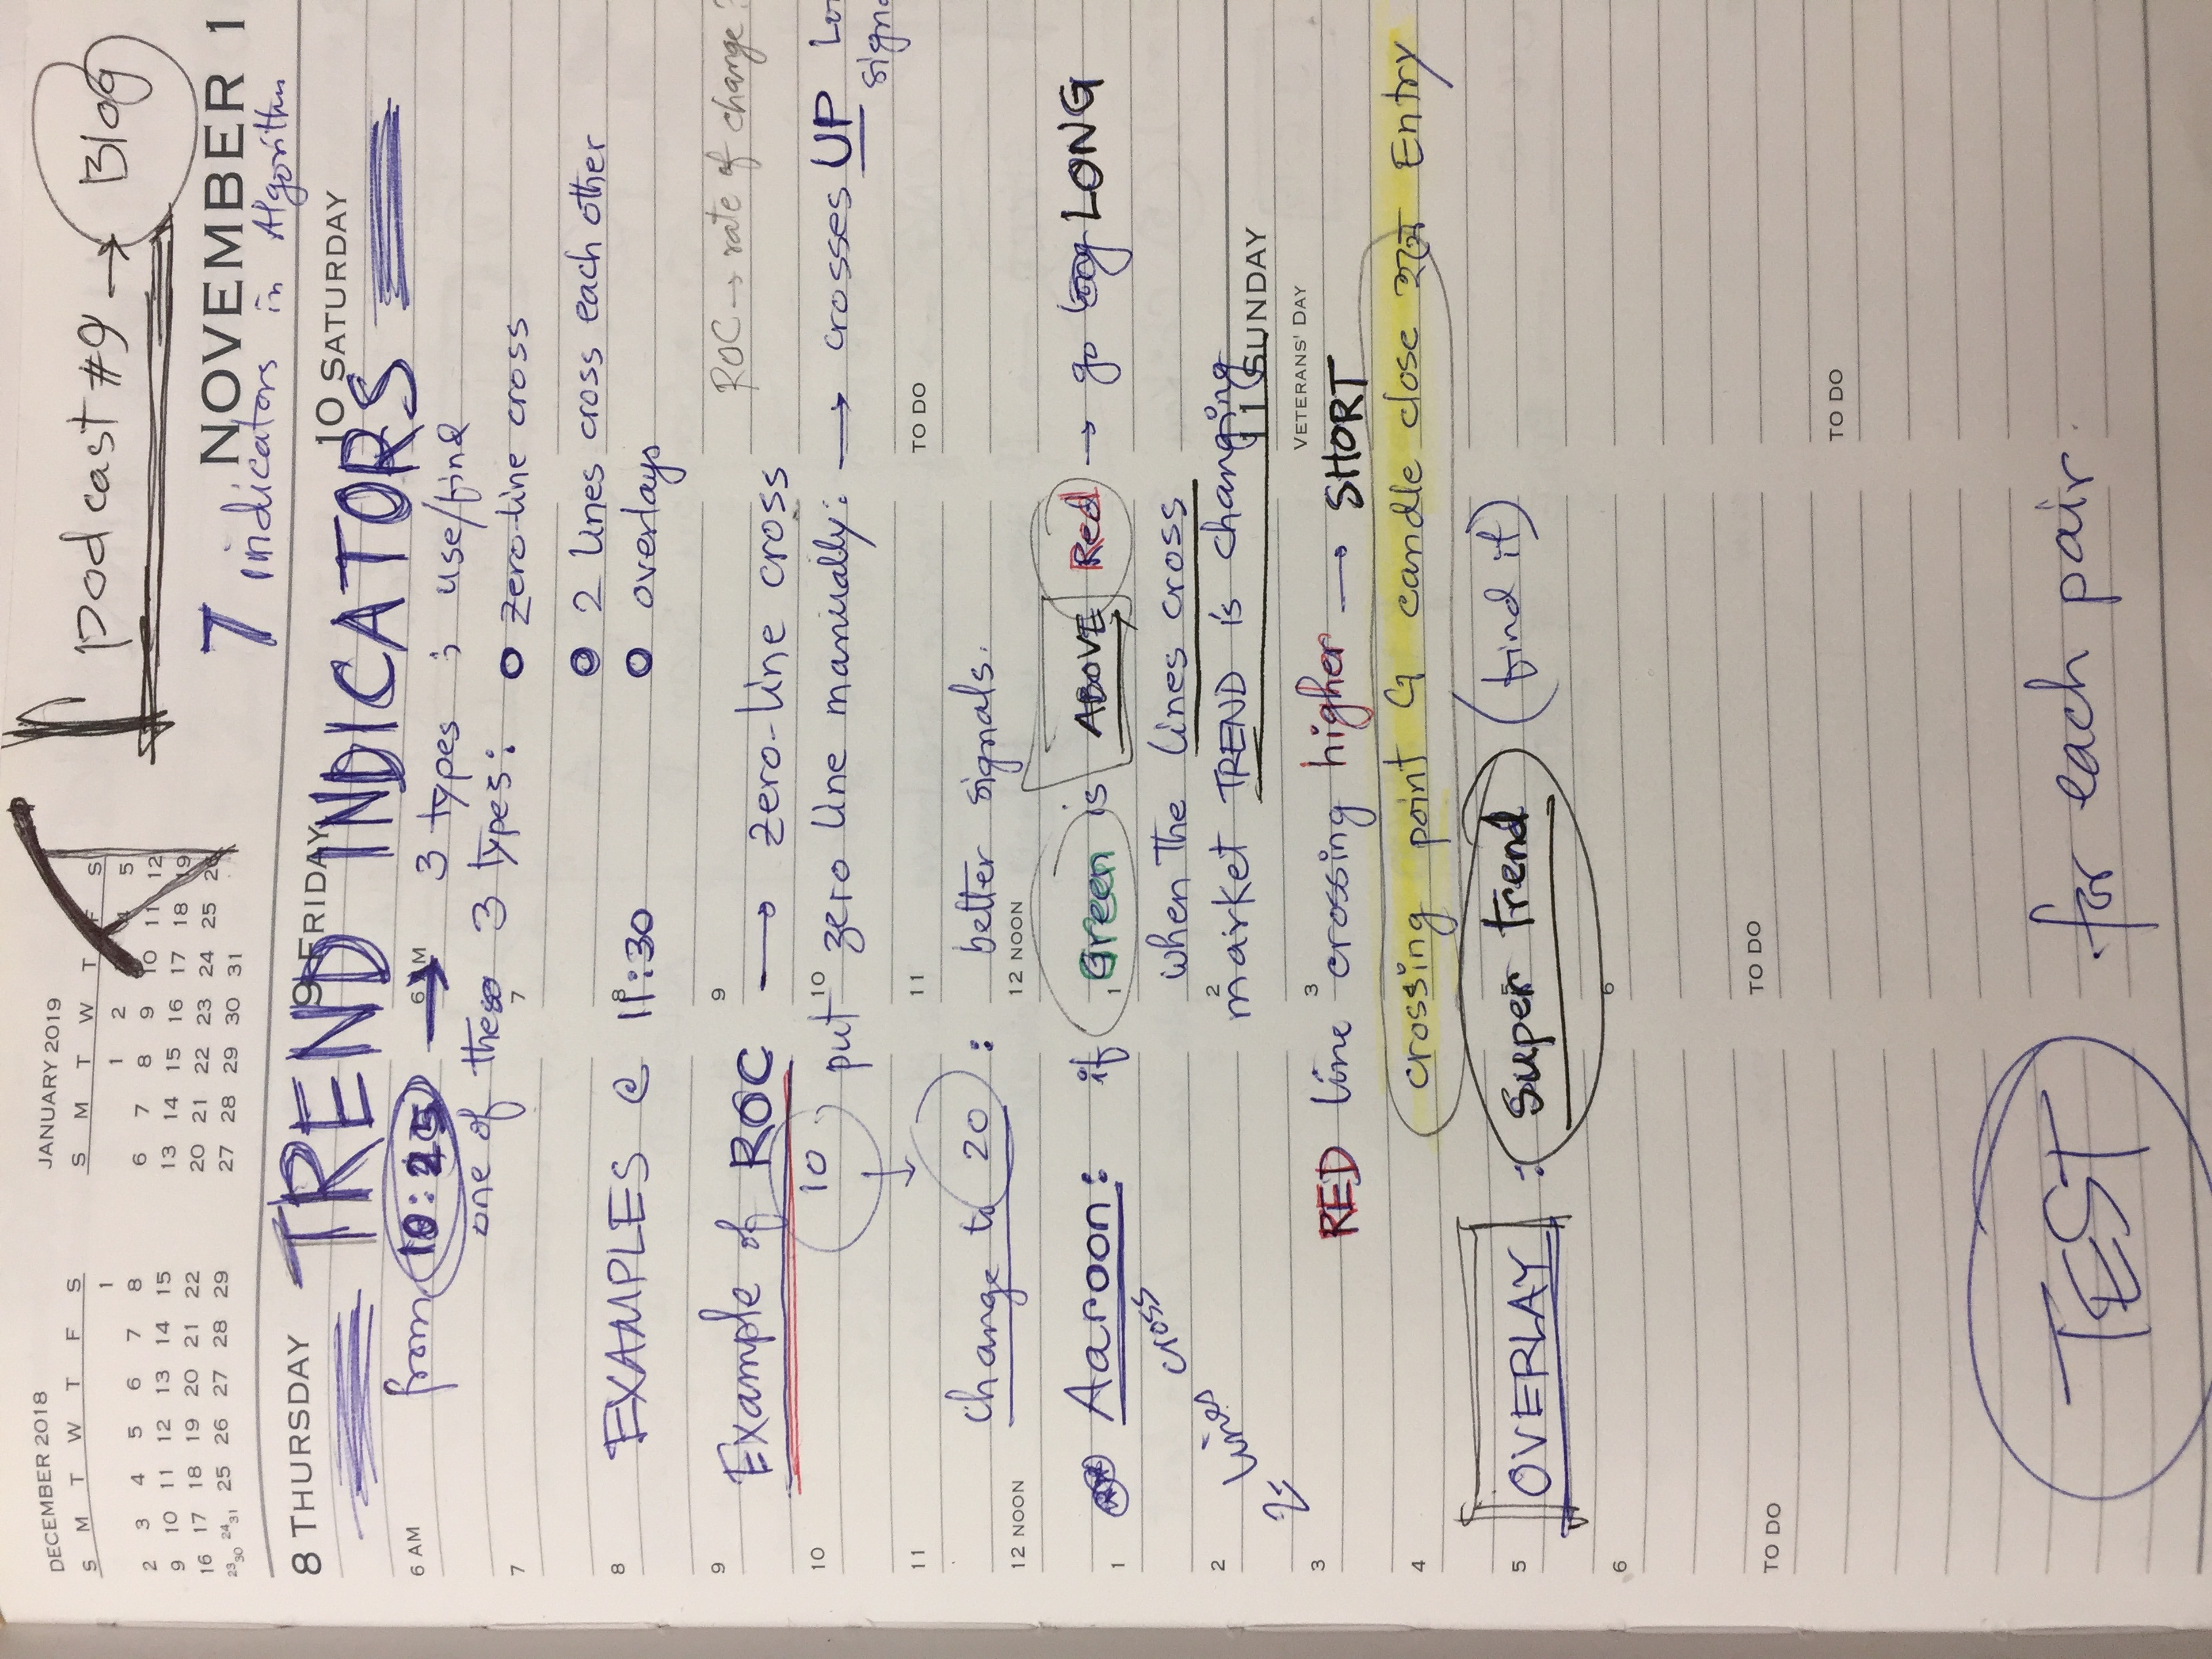 DECEMBER 2018
S M T W T F S
1
2 3 4 5 6 7 8
9 10 11 12 13 14 15
16 17 18 19 20 21 22
23/30 24/31 25 26 27 28 29
JANUARY 2019
S M T W T F S
1 2 3 4 5
6 7 8 9 10 11 12
13 14 15 16 17 18 19
20 21 22 23 24 25 26
27 28 29 30 31
podcast #9 → Blog
NOVEMBER 1
7 indicators in Algorithm
8 THURSDAY
9 FRIDAY
10 SATURDAY
TREND INDICATORS
6 AM
6 AM
from 10:25 → 3 types ; use/find
one of these 3 types:
7
7
zero-line cross
2 lines cross each other
8
8
EXAMPLES @ 11:30
overlays
9
9
ROC → rate of change?
Example of ROC → zero-line cross
10
10
10
put zero line manually: → crosses UP
11
11
TO DO
change to 20 : better signals.
12 NOON
12 NOON
Aaroon: if Green is ABOVE Red → go long LONG
1
1
2 lines cross
when the lines cross
2
2
market TREND is changing
11 SUNDAY
VETERANS' DAY
3
3
RED line crossing higher → SHORT
4
4
crossing point candle close Entry
5
5
OVERLAY : Super trend (find it)
6
6
TO DO
TO DO
TO DO
TEST for each pair.